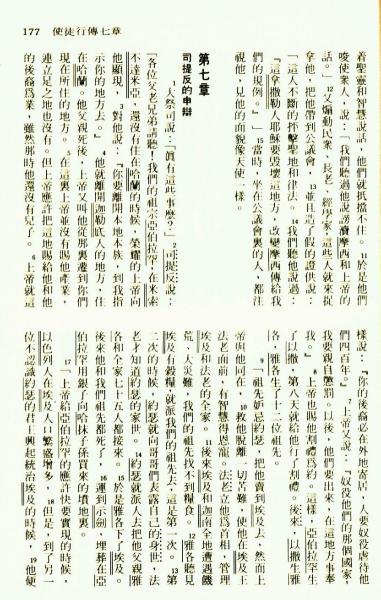 177 使徒行傳七章
着聖靈和智慧說話，他們就抵擋不住。11於是他們
唆使衆人，說：「我們聽過他說謗瀆摩西和上帝的
話。」12又煽動民衆、長老、經學家；這些人就來捉
拿他，把他帶到公議會，13並且造了假的證供說：
「這人不斷的抨擊聖地和律法。14我們聽他說過：
『這拿撒勒人耶穌要毀壞這地方，改變摩西傳給我
們的規例。』」15當時，坐在公議會裏的人，都注
視他，見他的面貌像天使一樣。
第七章
司提反的申辯
1大祭司說：「眞有這些事麼？」2司提反說：
「各位父老兄弟請聽！我們的祖宗亞伯拉罕，在米索
不達米亞，還沒有住在哈蘭的時候，榮耀的上帝向
他顯現，3對他說：『你要離開本地本族，到我指
示你的地方去。』4他就離開迦勒底人的地方，住
在哈蘭。他父親死後，上帝又叫他從那裏遷到你們
現在所住的地方。5在這裏上帝並沒有賜他產業，
連立足之地也沒有。但上帝應許把這地賜給他和他
的後裔爲業，雖然那時他還沒有兒子。6上帝就這
樣說：『你的後裔必在外地寄居，人要奴役虐待他
們四百年。』7上帝又說：『奴役他們的那個國家，
我要親自懲罰。以後，他們要出來，在這地方事奉
我。』8上帝也賜他割禮爲約。這樣，亞伯拉罕生
了以撒，第八天就給他行了割禮。後來，以撒生雅
各，雅各生了十二位祖先。
9「祖先妒忌約瑟，把他賣到埃及去，然而上
帝與他同在，10救他脫離一切苦難，使他在埃及王
法老面前，有智慧得恩寵。法老立他爲首相，管理
埃及和法老的全家。11後來埃及和迦南全地遭遇饑
荒，大災難，我們的祖先找不到糧食。12雅各聽見
埃及有穀糧，就派我們的祖先去，這是第一次。13第
二次的時候，約瑟就向哥哥們表露自己的身世，法
老才知道約瑟的家世。14約瑟就派人去把他父親雅
各和全家七十五人都接來。15於是雅各下了埃及。
後來他和我們祖先都死了，16運到示劍，埋葬在亞
伯拉罕用銀子向哈抹子孫買來的墳地裏。
17「上帝給亞伯拉罕的應許快要實現的時候，
以色列人在埃及人口繁盛增多，18但是，到了另一
位不認識約瑟的君王興起統治埃及的時候，19他便